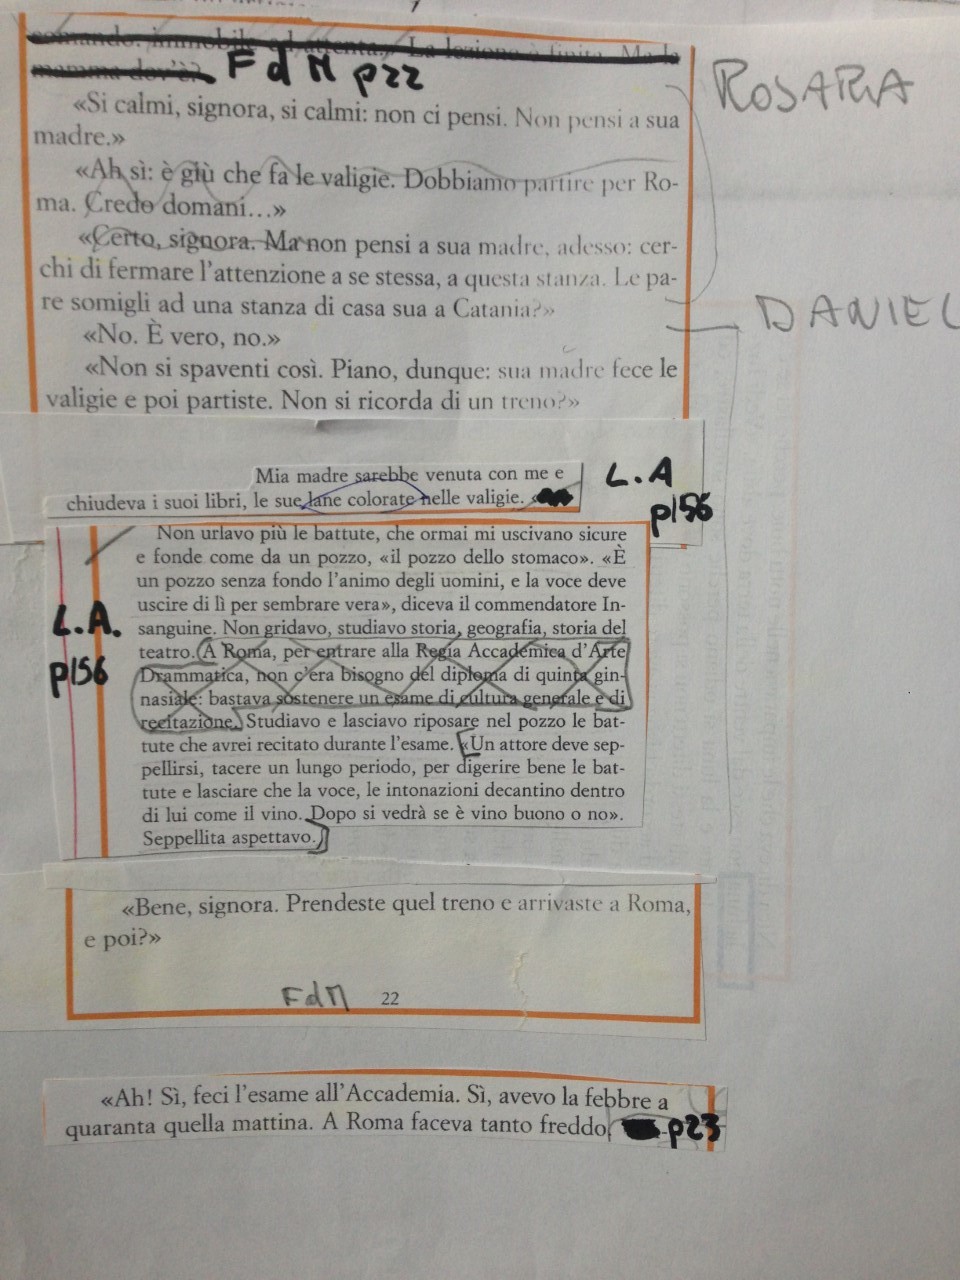 comando: immobile ed attenta.» La lezione è finita. Ma la
mamma dov'è?
FdM p22
ROSARIA
«Si calmi, signora, si calmi: non ci pensi. Non pensi a sua
madre.»
«Ah sì: è giù che fa le valigie. Dobbiamo partire per Ro-
ma. Credo domani...»
«Certo, signora. Ma non pensi a sua madre, adesso: cer-
chi di fermare l'attenzione a se stessa, a questa stanza. Le pa-
re somigli ad una stanza di casa sua a Catania?»
DANIEL
«No. È vero, no.»
«Non si spaventi così. Piano, dunque: sua madre fece le
valigie e poi partiste. Non si ricorda di un treno?»
Mia madre sarebbe venuta con me e
chiudeva i suoi libri, le sue lane colorate nelle valigie.
L.A
p156
Non urlavo più le battute, che ormai mi uscivano sicure
e fonde come da un pozzo, «il pozzo dello stomaco». «È
un pozzo senza fondo l'animo degli uomini, e la voce deve
uscire di lì per sembrare vera», diceva il commendatore In-
sanguine. Non gridavo, studiavo storia, geografia, storia del
teatro. A Roma, per entrare alla Regia Accademica d'Arte
Drammatica, non c'era bisogno del diploma di quinta gin-
nasiale: bastava sostenere un esame di cultura generale e di
recitazione. Studiavo e lasciavo riposare nel pozzo le bat-
tute che avrei recitato durante l'esame. «Un attore deve sep-
pellirsi, tacere un lungo periodo, per digerire bene le bat-
tute e lasciare che la voce, le intonazioni decantino dentro
di lui come il vino. Dopo si vedrà se è vino buono o no».
Seppellita aspettavo.
L.A.
p156
«Bene, signora. Prendeste quel treno e arrivaste a Roma,
e poi?»
FdM 22
«Ah! Sì, feci l'esame all'Accademia. Sì, avevo la febbre a
quaranta quella mattina. A Roma faceva tanto freddo
p23